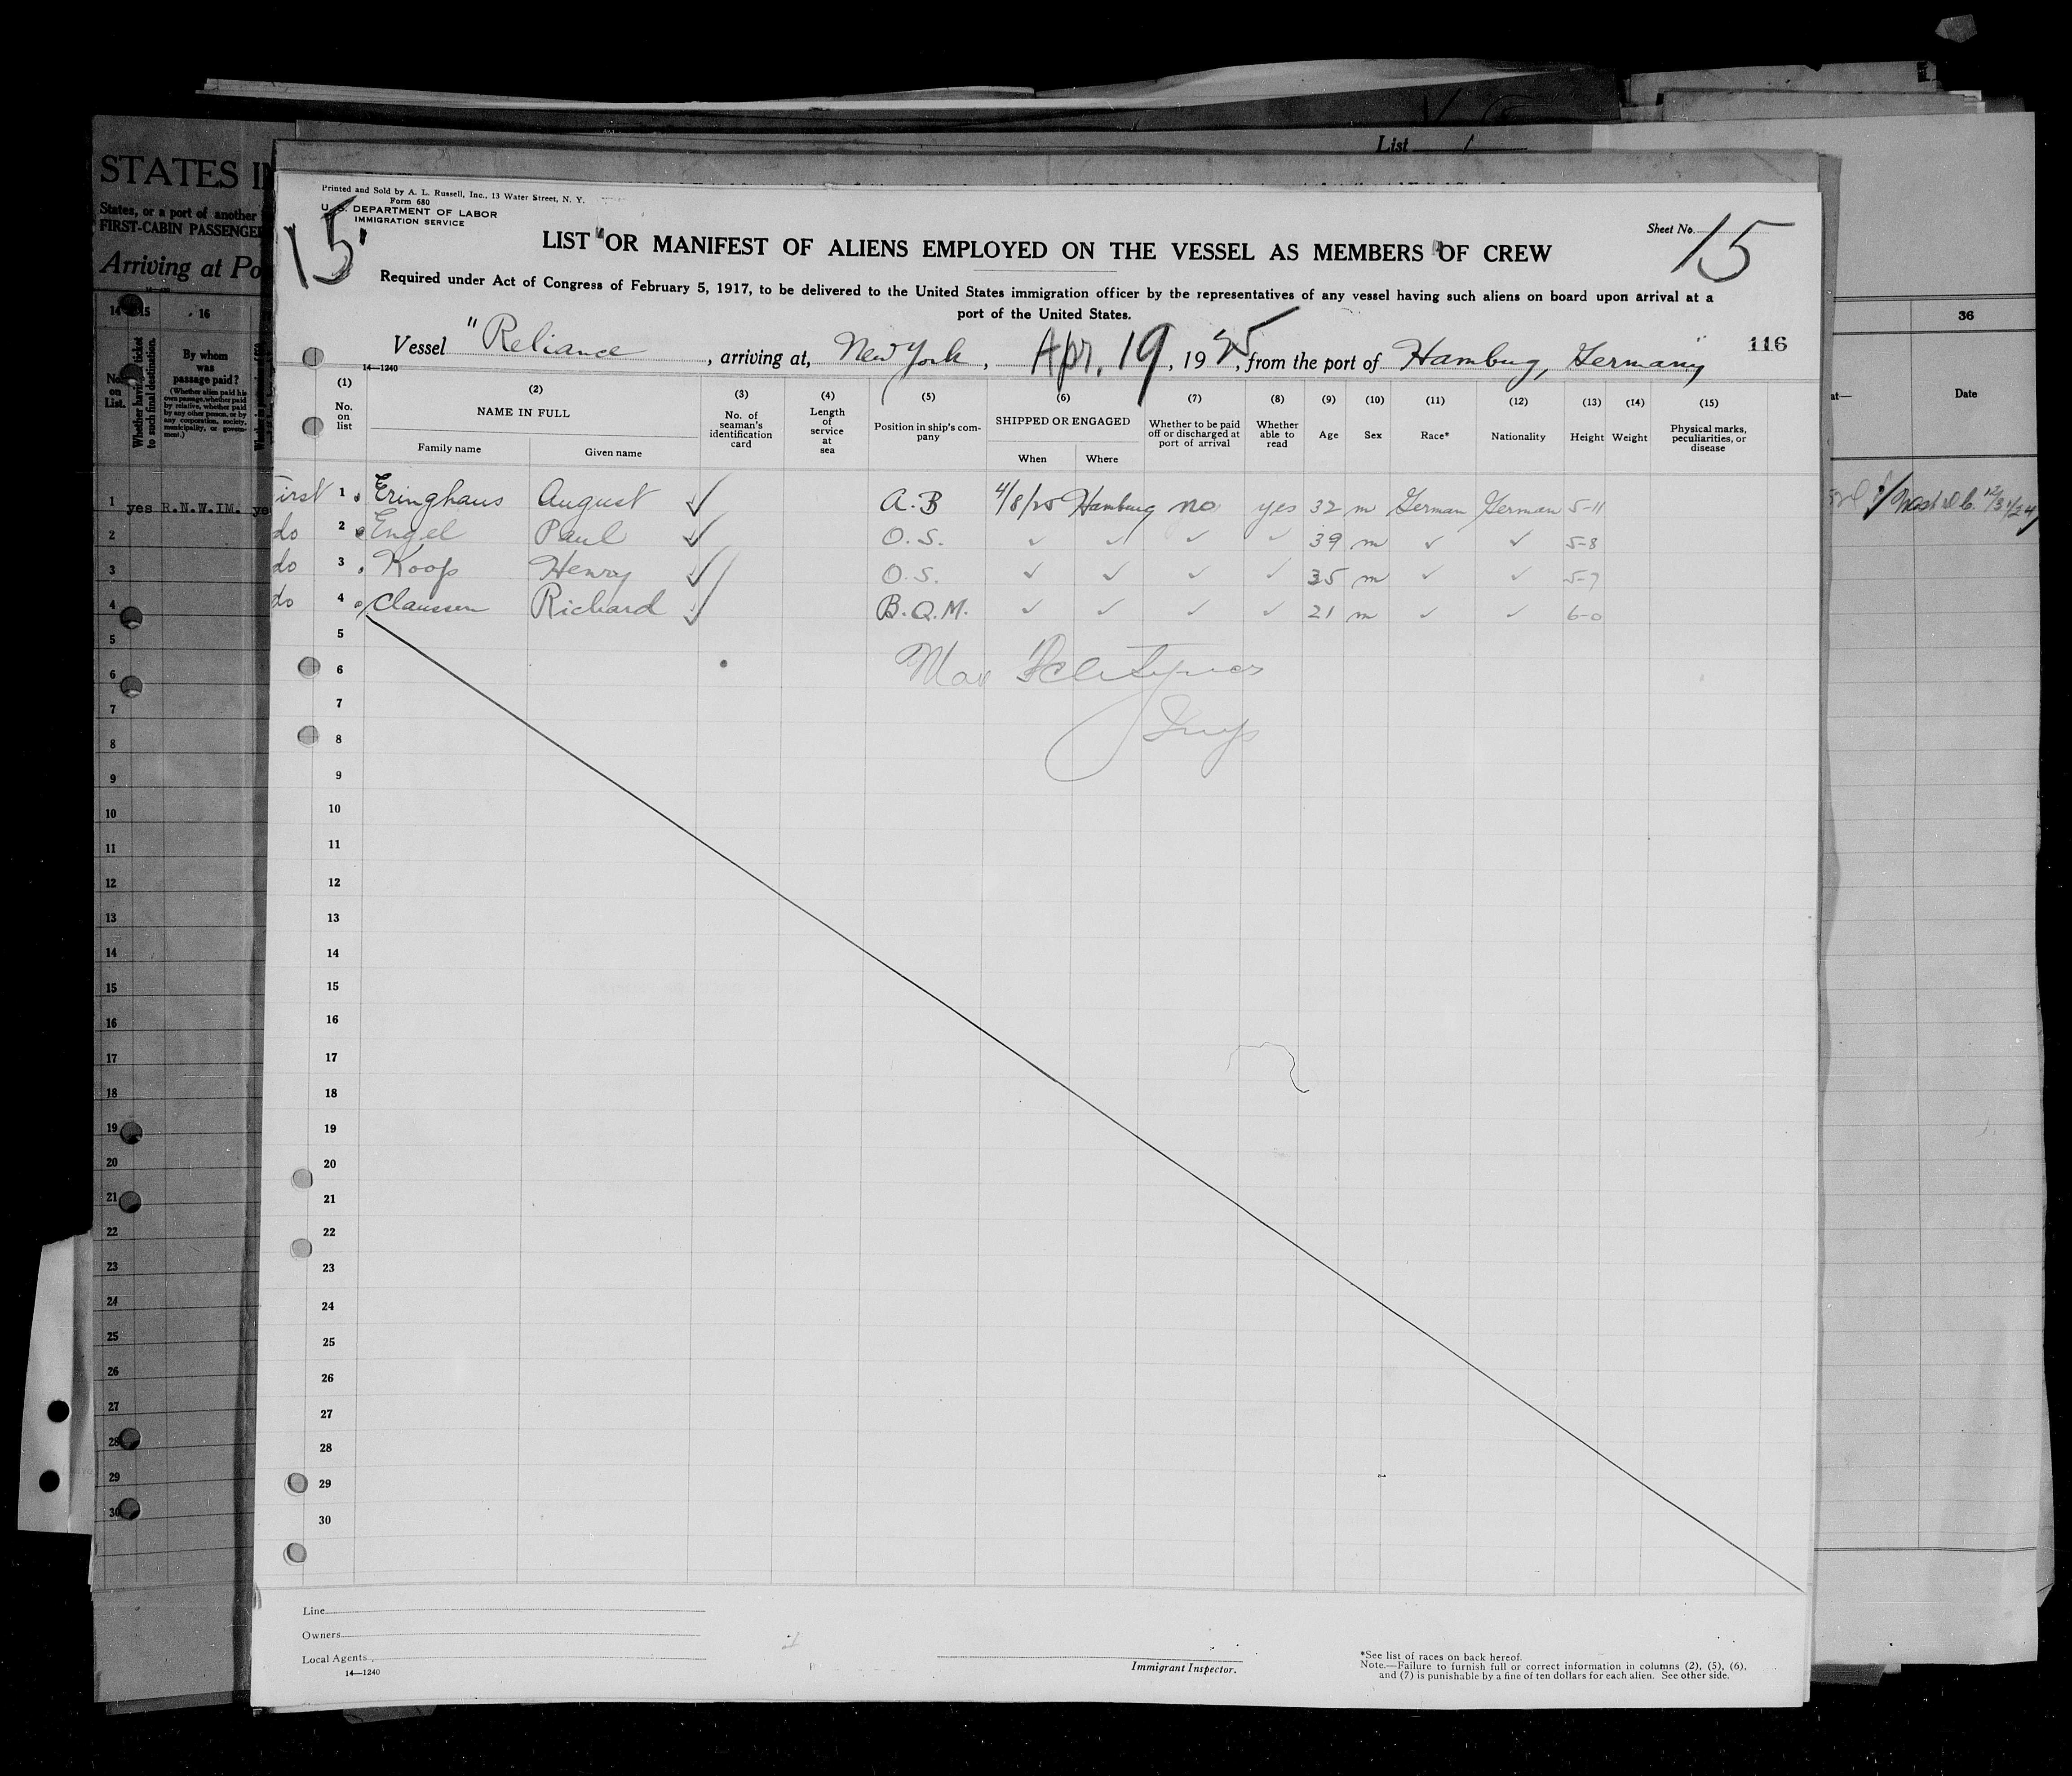 List 1
STATES IM
States, or a port of another
FIRST-CABIN PASSENGER
Arriving at Po
14 15 16
No. on List.
Whether having a ticket to such final destination.
By whom was passage paid?
(Whether alien paid his own passage, whether paid by relative, whether paid by any other person, or by any corporation, society, municipality, or government.)
1 yes R.N.W.IM. ye
2
3
4
5
6
7
8
9
10
11
12
13
14
15
16
17
18
19
20
21
22
23
24
25
26
27
28
29
30
Printed and Sold by A. L. Russell, Inc., 13 Water Street, N. Y.
Form 680
U. S. DEPARTMENT OF LABOR
IMMIGRATION SERVICE
15
Sheet No. 15
LIST OR MANIFEST OF ALIENS EMPLOYED ON THE VESSEL AS MEMBERS OF CREW
Required under Act of Congress of February 5, 1917, to be delivered to the United States immigration officer by the representatives of any vessel having such aliens on board upon arrival at a
port of the United States.
116
Vessel "Reliance , arriving at, New York , Apr. 19 , 1925, from the port of Hamburg, Germany
14—1240
(1) No. on list
(2) NAME IN FULL
Family name Given name
(3) No. of seaman's identification card
(4) Length of service at sea
(5) Position in ship's company
(6) SHIPPED OR ENGAGED
When Where
(7) Whether to be paid off or discharged at port of arrival
(8) Whether able to read
(9) Age
(10) Sex
(11) Race*
(12) Nationality
(13) Height
(14) Weight
(15) Physical marks, peculiarities, or disease
First 1 Eringhaus August ✓ A.B 4/8/25 Hamburg no yes 32 m German German 5-11
do 2 Engel Paul ✓ O.S. ✓ ✓ ✓ ✓ 39 m ✓ ✓ 5-8
do 3 Koop Henry ✓ O.S. ✓ ✓ ✓ ✓ 35 m ✓ ✓ 5-7
do 4 Claussen Richard ✓ B.Q.M. ✓ ✓ ✓ ✓ 21 m ✓ ✓ 6-0
5
6 Max
7
8 Insp
9
10
11
12
13
14
15
16
17
18
19
20
21
22
23
24
25
26
27
28
29
30
Line
Owners
Local Agents
14—1240
Immigrant Inspector.
*See list of races on back hereof.
Note.—Failure to furnish full or correct information in columns (2), (5), (6),
and (7) is punishable by a fine of ten dollars for each alien. See other side.
36
at—
Date